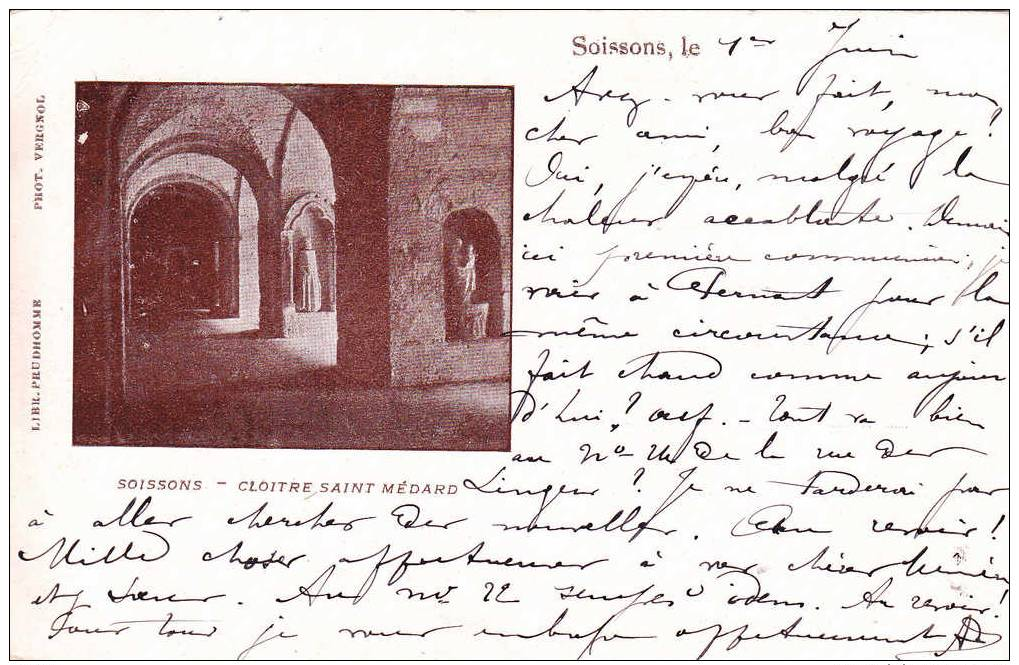 Soissons, le 1er Juin
Avez-vous fait, mon
cher ami, bon voyage!
Oui, j'espère, malgré la
chaleur accablante. Demain
ici première communion, je
vais à Pernant pour la
même circonstance; s'il
fait chaud comme aujour
d'hui, ? ouf. - Tout va bien
au No de la rue des
Linger ? Je ne tarderai pas
à aller chercher des nouvelles. Au revoir!
Mille choses affectueuses à vos chères
et sœur. Au no 22 idem. Au revoir!
Pour tous je vous embrasse affectueusement
SOISSONS - CLOITRE SAINT MÉDARD
LIBR. PRUDHOMME
PHOT. VERGNOL